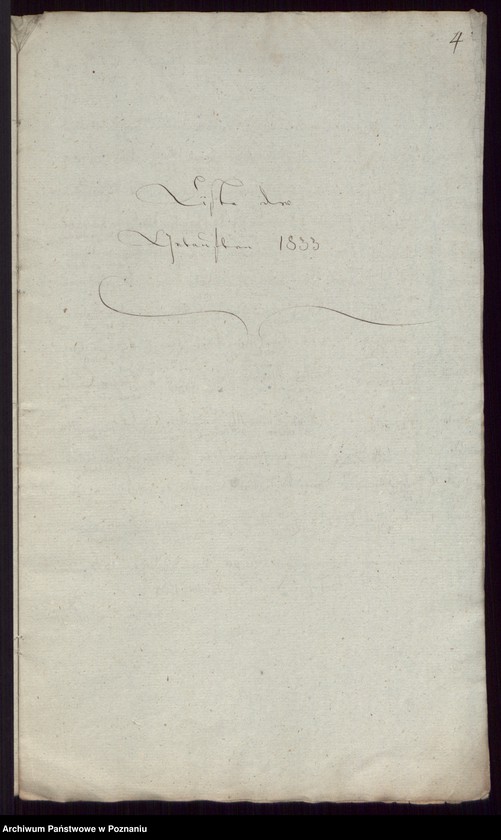 4
Liste der
Getauften 1833
Archiwum Państwowe w Poznaniu